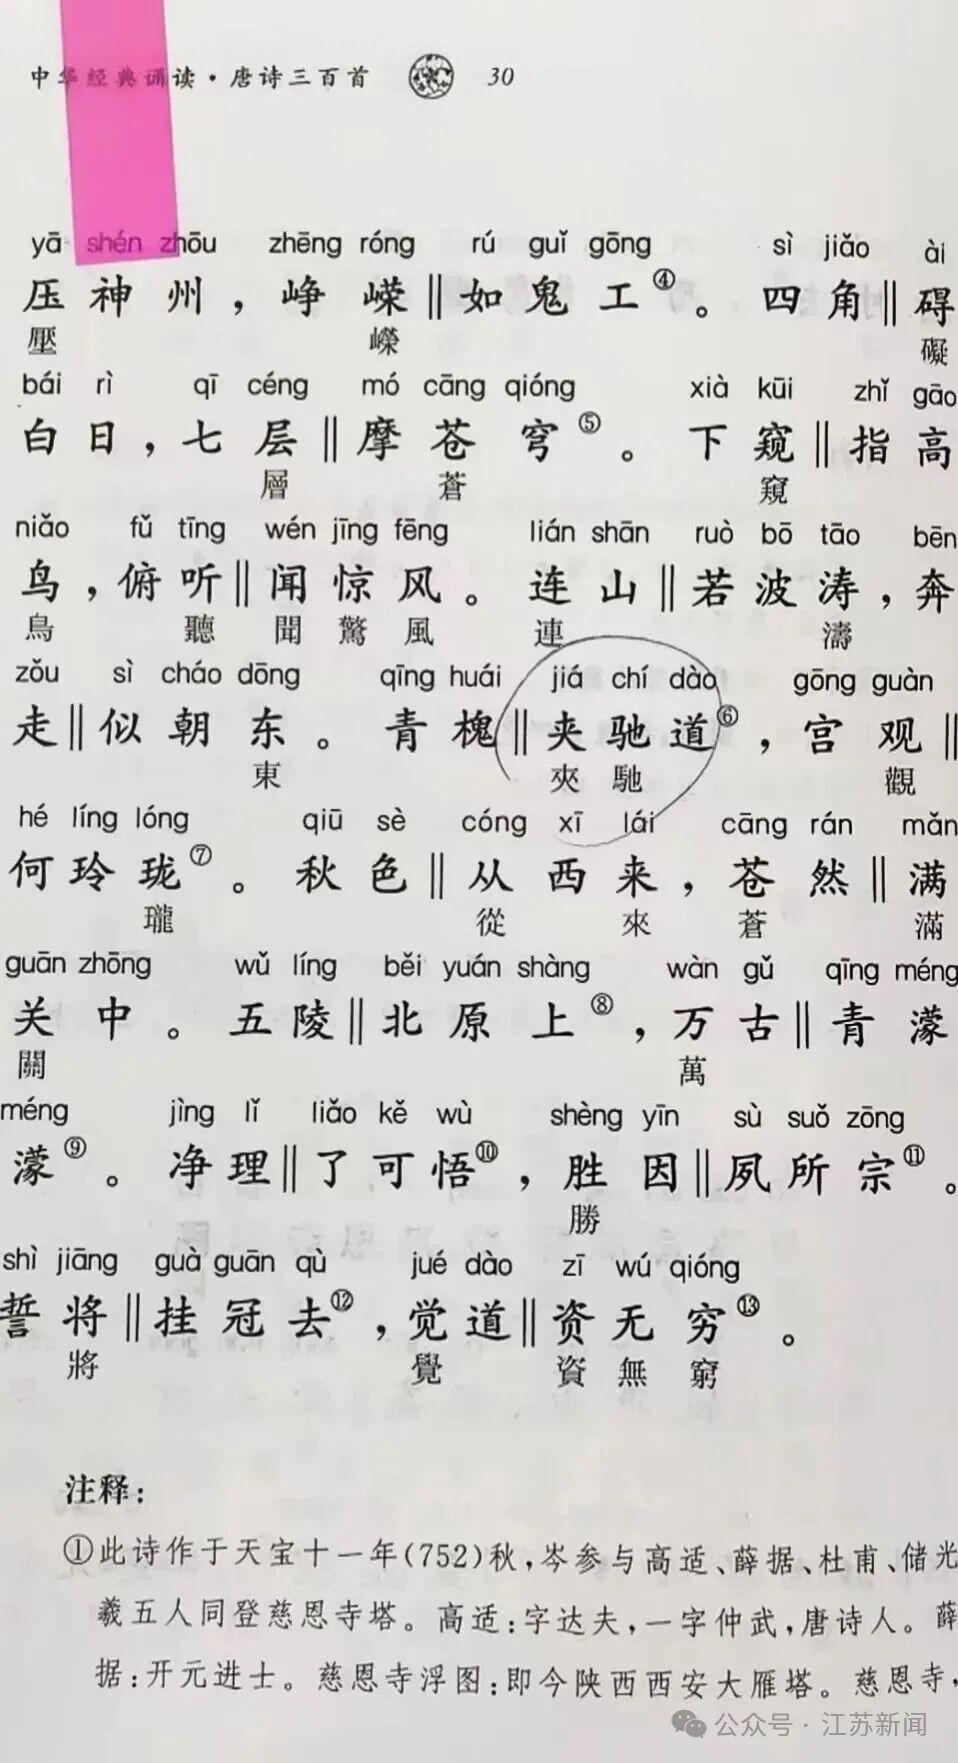 中华经典诵读·唐诗三百首 30
yā shén zhōu zhēng róng rú guǐ gōng sì jiǎo ài
压神州，峥嵘‖如鬼工④。四角‖碍
壓 嶸 礙
bái rì qī céng mó cāng qióng xià kūi zhǐ gāo
白日，七层‖摩苍穹⑤。下窥‖指高
層 蒼 窺
niǎo fǔ tīng wén jīng fēng lián shān ruò bō tāo bēn
鸟，俯听‖闻惊风。连山‖若波涛，奔
鳥 聽 聞 驚 風 連 濤
zǒu sì cháo dōng qīng huái jiá chí dào gōng guàn
走‖似朝东。青槐‖夹驰道⑥，宫观‖
東 夾 馳 觀
hé líng lóng qiū sè cóng xī lái cāng rán mǎn
何玲珑⑦。秋色‖从西来，苍然‖满
瓏 從 來 蒼 滿
guān zhōng wǔ líng běi yuán shàng wàn gǔ qīng méng
关中。五陵‖北原上⑧，万古‖青濛
關 萬
méng jìng lǐ liǎo kě wù shèng yīn sù suǒ zōng
濛⑨。净理‖了可悟⑩，胜因‖夙所宗⑪。
勝
shì jiāng guà guān qù jué dào zī wú qióng
誓将‖挂冠去⑫，觉道‖资无穷⑬。
將 覺 資 無 窮
注释：
①此诗作于天宝十一年(752)秋，岑参与高适、薛据、杜甫、储光
羲五人同登慈恩寺塔。高适：字达夫，一字仲武，唐诗人。薛
据：开元进士。慈恩寺浮图：即今陕西西安大雁塔。慈恩寺，
公众号·江苏新闻